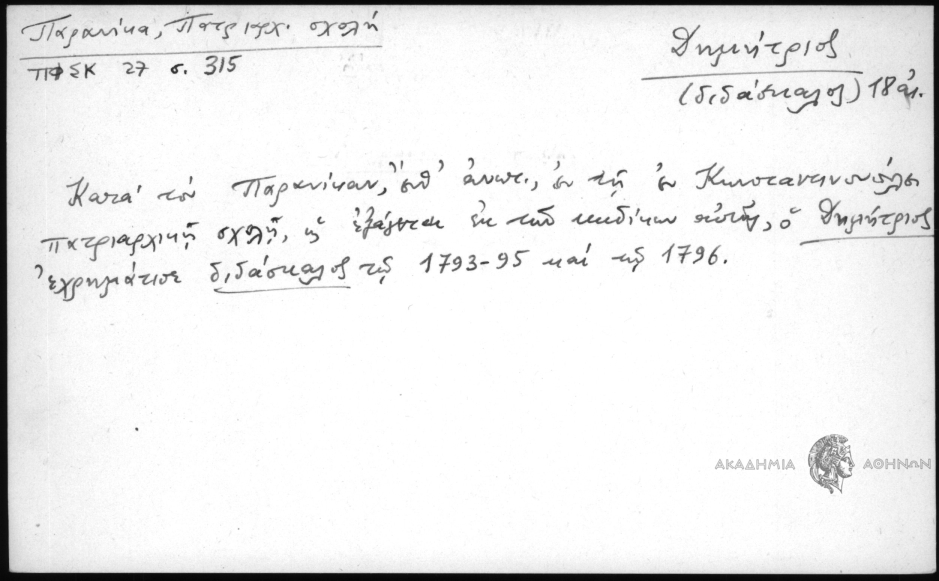 Παρανίκα, Πατριαρχ. σχολή
ΠΦΣΚ 27 σ. 315
Δημήτριος
(διδάσκαλος) 18 αἰ.
Κατά τόν Παρανίκαν, ἔνθ' ἀνωτ., ἐν τῇ ἐν Κωνσταντινουπόλει
πατριαρχικῇ σχολῇ, ὡς ἐξάγεται ἐκ τοῦ κώδικος αὐτῆς, ὁ Δημήτριος
ἐχρημάτισε διδάσκαλος τῷ 1793-95 καί τῷ 1796.
ΑΚΑΔΗΜΙΑ ΑΘΗΝΩΝ